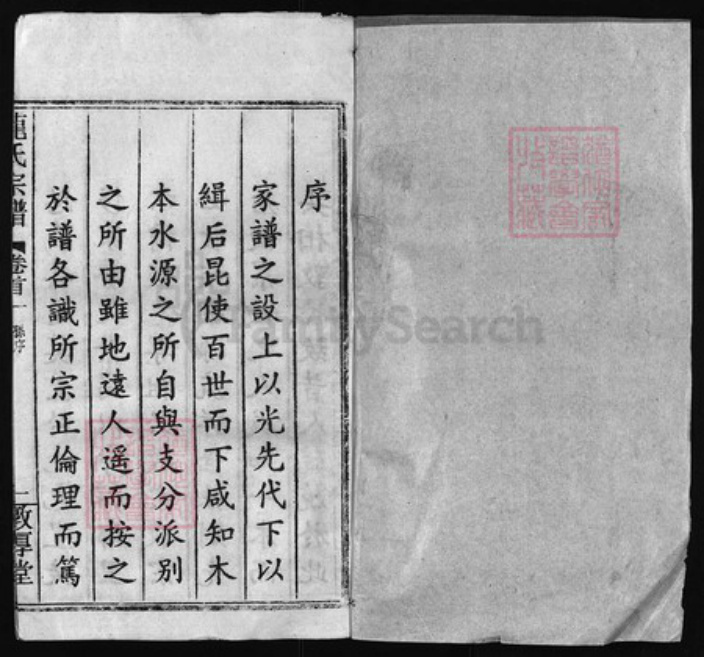 序
家譜之設上以光先代下以
緝后昆使百世而下咸知木
本水源之所自與支分派別
之所由雖地遠人遥而按之
於譜各識所宗正倫理而篤
氏宗譜 卷首 一 孫序 敦厚堂
FamilySearch